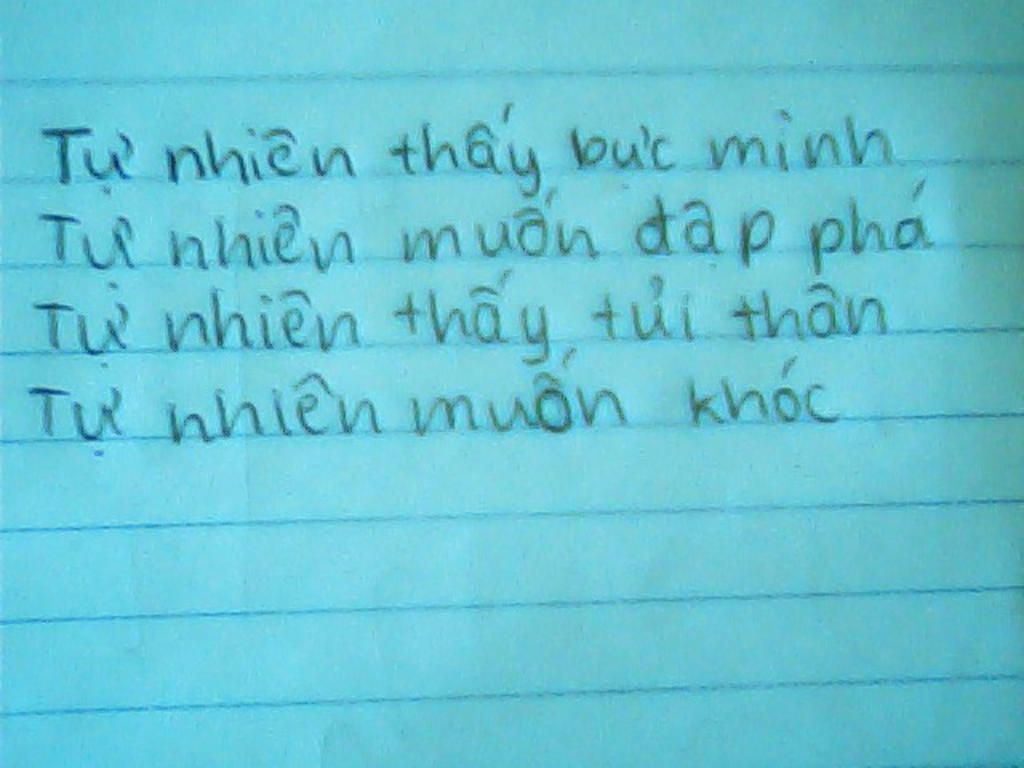 Tự nhiên thấy bực mình
Tự nhiên muốn đập phá
Tự nhiên thấy tủi thân
Tự nhiên muốn khóc